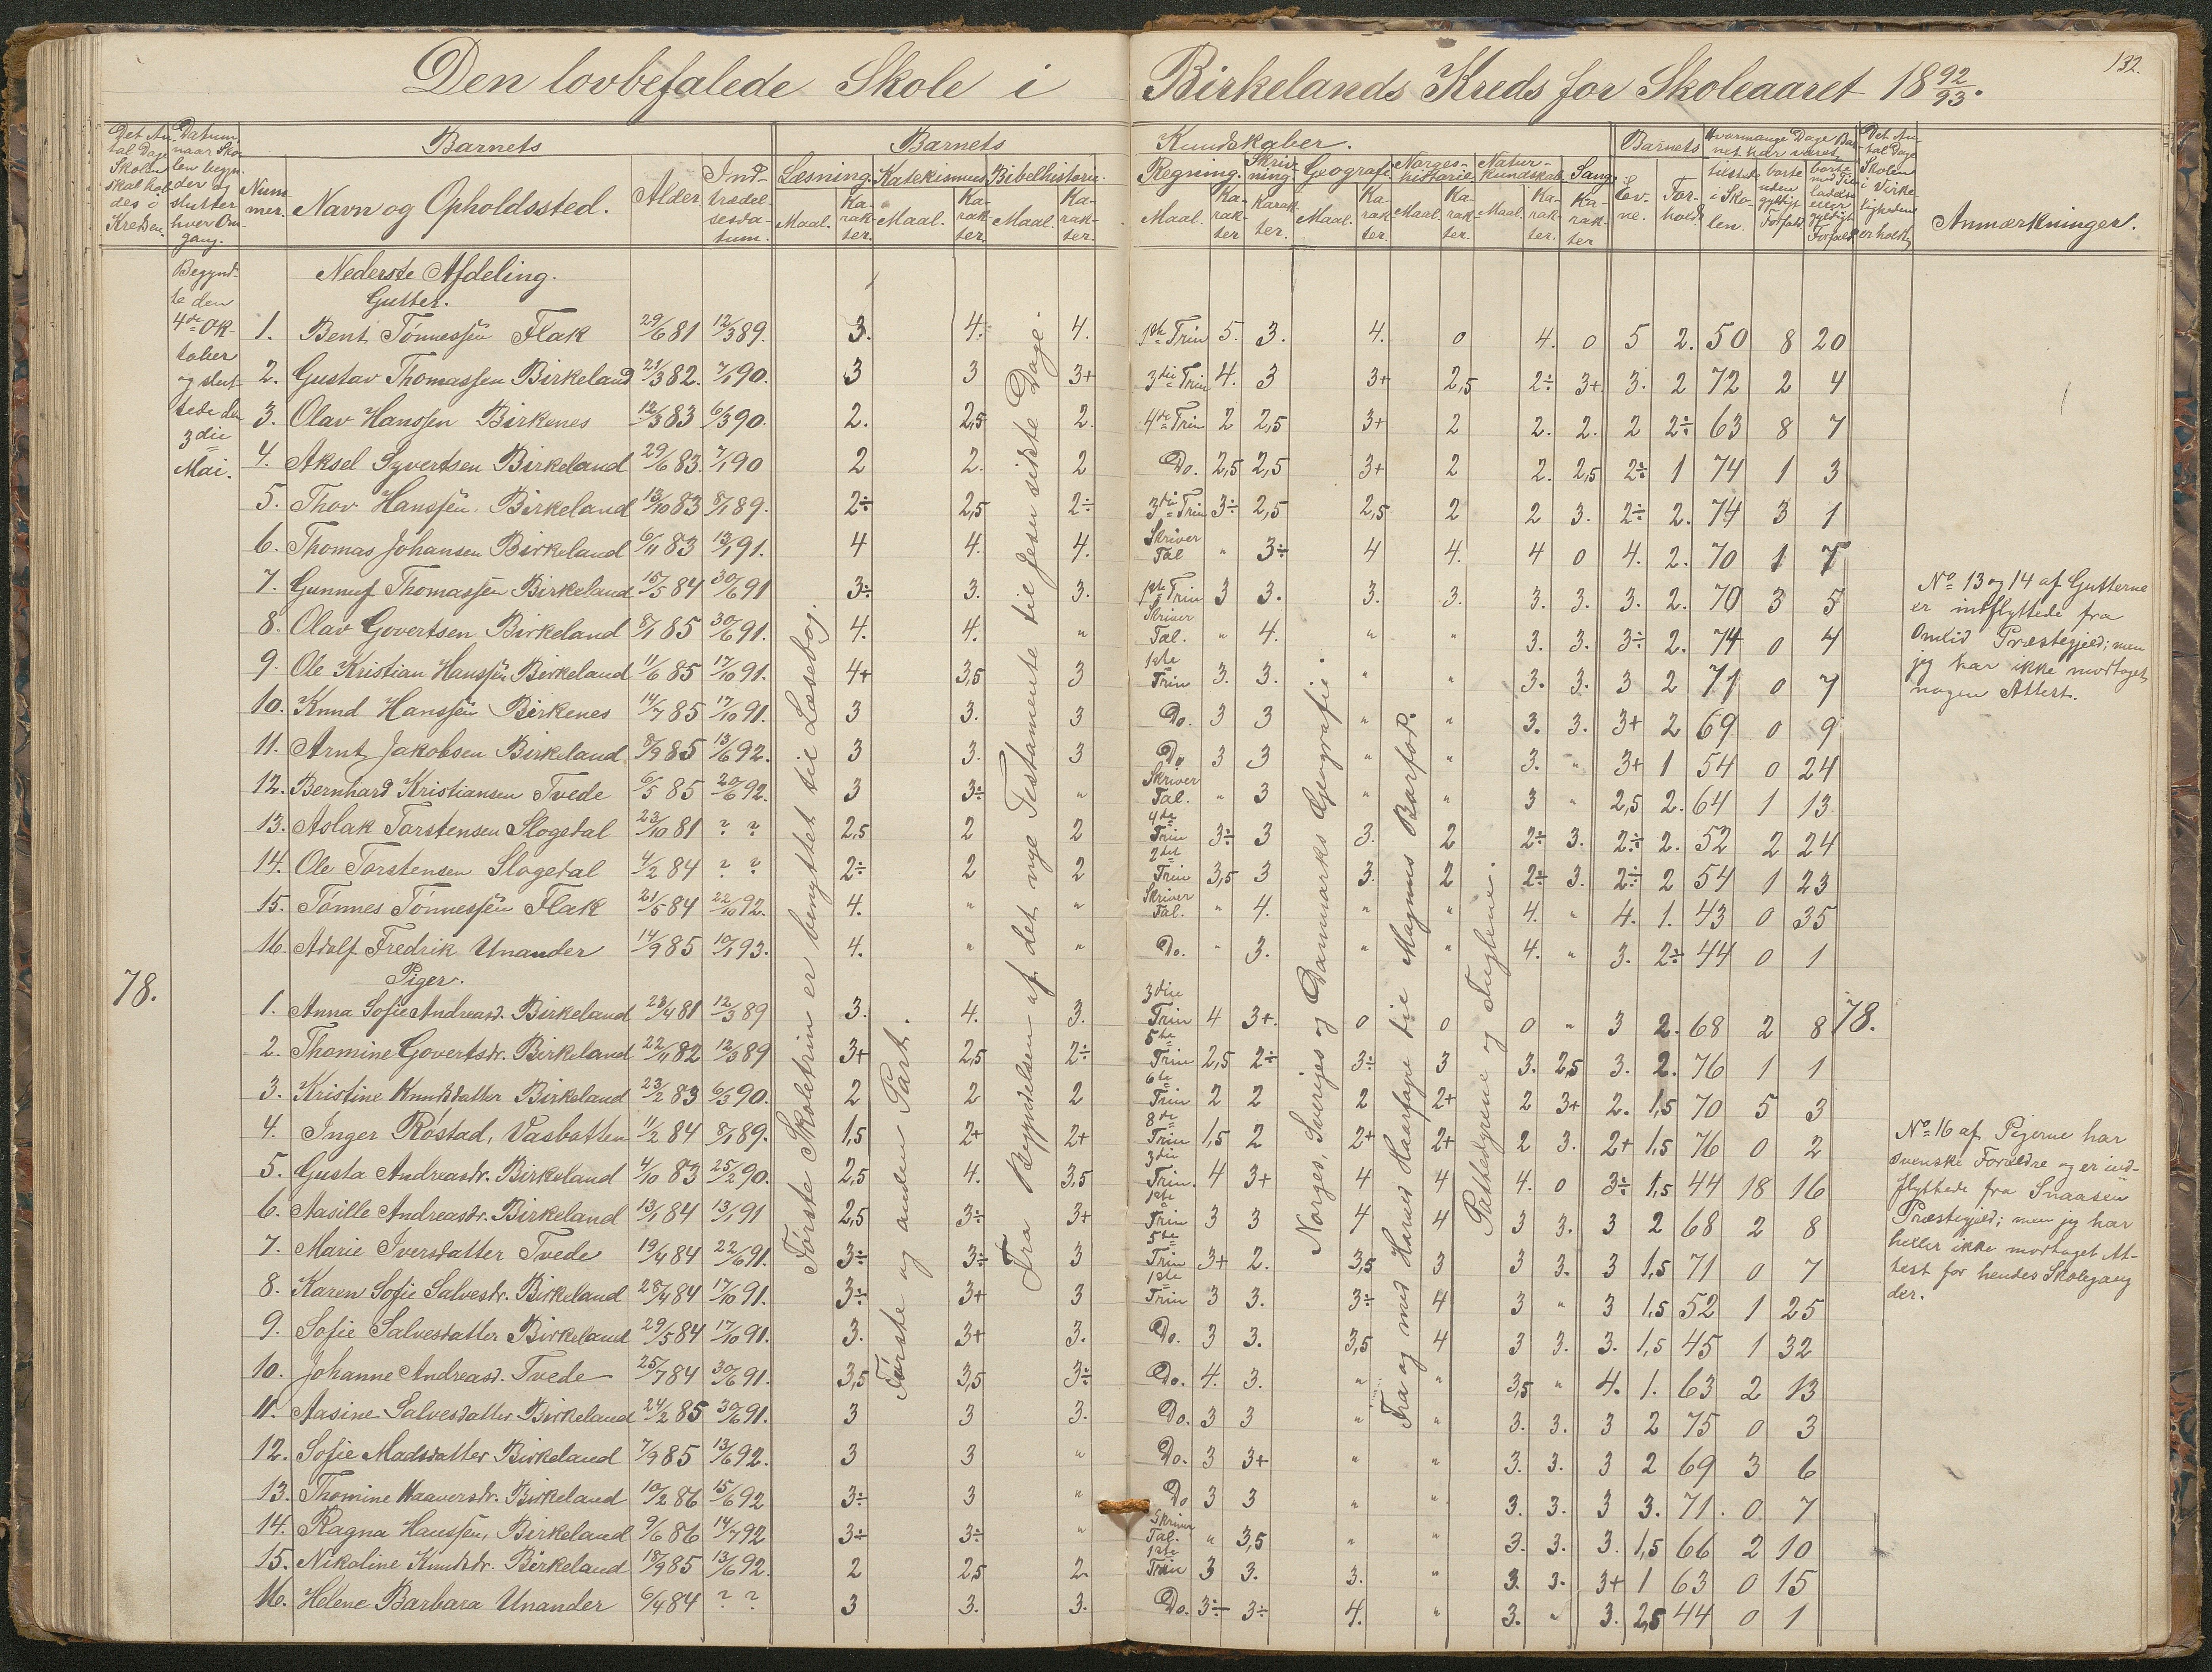 132.
Den lovbefalede Skole i Birkelands Kreds for Skoleaaret 18 92/93.
Det Antal Dage Skolen skal holdes i Kredsen.
Datum naar Skolen begynder og slutter hver Omgang.
Nummer.
Barnets
Navn og Opholdssted.
Alder
Indtrædelsesdatum.
Barnets Kundskaber.
Læsning. Maal. Karakter.
Katekismus Maal. Karakter.
Bibelhistorie. Maal. Karakter.
Regning. Maal. Karakter
Skrivning. Karakter.
Geografi Maal. Karakter.
Norgeshistorie. Maal. Karakter.
Naturkundskab. Maal. Karakter.
Sang. Karakter
Barnets Evne. Forhold.
Hvormange Dage Barnet har været
tilstede i Skolen.
borte uden gyldigt Forfald
borte med Tilladelse eller gyldigt Forfald
Det Antal Dage Skolen i Virkeligheden er holdt.
Anmærkninger.
Begyndte den 4de Oktober og sluttede den 3die Mai.
78.
Nederste Afdeling.
Gutter.
1. Bent Tønnessen Flak 29/6 81 12/3 89. 3. 4. 4. 1ste Trin 5. 3. 4. 0 4. 0 5 2. 50 8 20
2. Gustav Thomassen Birkeland 21/3 82. 7/1 90. 3 3 3+ 3die Trin 4. 3 3+ 2,5 2÷ 3+ 3. 2 72 2 4
3. Olav Hanssen Birkenes 12/3 83 6/3 90. 2. 2,5 2. 4de Trin 2 2,5 3+ 2 2. 2. 2 2÷ 63 8 7
4. Aksel Syvertsen Birkeland 29/6 83. 7/1 90 2 2. 2 Do. 2,5 2,5 3+ 2 2. 2,5 2÷ 1 74 1 3
5. Thov Hanssen, Birkeland 13/10 83 8/1 89. 2÷ 2,5 2÷ 3die Trin 3÷ 2,5 2,5 2 2 3. 2÷ 2. 74 3 1
6. Thomas Johansen Birkeland 6/11 83 13/1 91. 4 4. 4. Skriver Tal " 3÷ 4 4. 4 0 4. 2. 70 1 7
7. Gunnuf Thomassen Birkeland 15/5 84 30/6 91 3÷ 3. 3. 1ste Trin 3 3. 3. 3. 3. 3. 3. 2. 70 3 5
8. Olav Govertsen Birkeland 8/1 85 30/6 91. 4. 4. " Skriver Tal. " 4. " " 3. 3. 3÷ 2. 74 0 4
9. Ole Kristian Hanssen Birkeland 11/6 85 17/10 91. 4+ 3,5 3 1ste Trin 3. 3. " " 3. 3. 3 2 71 0 7
10. Knud Hanssen Birkenes 14/7 85 17/10 91. 3 3. 3 Do. 3 3 " " 3. 3. 3+ 2 69 0 9
11. Arnt Jakobsen Birkeland 8/9 85 13/6 92. 3 3. 3 Do 3 3 " " 3. " 3+ 1 54 0 24
12. Bernhard Kristiansen Tvede 6/5 85 20/6 92. 3 3÷ " Skriver Tal. " 3 " " 3 " 2,5 2. 64 1 13.
13. Aslak Torstensen Slogedal 23/10 81 ? ? 2,5 2 2 4de Trin 3÷ 3 3. 2 2÷ 3. 2÷ 2. 52 2 24
14. Ole Torstensen Slogedal 4/2 84 ? ? 2÷ 2 2 2det Trin 3,5 3 3. 2 2÷ 3. 2÷ 2 54 1 23
15. Tønnes Tønnessen Flak 21/5 84 22/10 92. 4. " " Skriver Tal. " 4. " " 4. " 4. 1. 43 0 35
16. Adolf Fredrik Unander 14/9 85 10/1 93. 4. " " Do. " 3. " " 4. " 3. 2÷ 44 0 1
Piger.
1. Anna Sofie Andreasd. Birkeland 23/4 81 12/3 89 3. 4. 3. 3die Trin 4 3+. 0 0 0 " 3 2. 68 2 8 78.
2. Thomine Govertsdr. Birkeland 22/11 82 12/3 89 3+ 2,5 2÷ 5te Trin 2,5 2÷ 3÷ 3 3. 2,5 3. 2. 76 1 1
3. Kristine Knudsdatter Birkeland 23/2 83 6/3 90. 2 2 2 6te Trin 2 2 2 2+ 2 3+ 2. 1,5 70 5 3
4. Inger Røstad, Vasbotten 11/2 84 8/1 89. 1,5 2+ 2+ 8de Trin 1,5 2 2+ 2+ 2 3. 2+ 1,5 76 0 2
5. Gusta Andreasdr. Birkeland 4/10 83 25/2 90. 2,5 4. 3,5 3die Trin. 4 3+ 4 4 4. 0 3÷ 1,5 44 18 16
6. Aasille Andreasdr. Birkeland 13/1 84 13/1 91 2,5 3÷ 3+ 1ste Trin 3 3 4 4 3 3. 3 2 68 2 8
7. Marie Iversdatter Tvede 19/4 84 22/6 91. 3÷ 3÷ 3 5te Trin 3+ 2. 3,5 3 3 3. 3 1,5 71 0 7
8. Karen Sofie Salvesdr. Birkeland 28/4 84 17/10 91. 3÷ 3+ 3 1ste Trin 3 3. 3÷ 4 3 " 3 1,5 52 1 25
9. Sofie Salvesdatter Birkeland 29/5 84 17/10 91. 3. 3+ 3. Do. 3 3. 3,5 4 3 3. 3. 1,5 45 1 32
10. Johanne Andreasd. Tvede 25/7 84 30/6 91. 3,5 3,5 3÷ Do. 4. 3. " " 3,5 " 4. 1. 63 2 13
11. Aasine Salvesdatter Birkeland 24/2 85 30/6 91. 3 3 3. Do. 3 3 " " 3. 3. 3 2 75 0 3
12. Sofie Madsdatter Birkeland 7/9 85 13/6 92. 3 3 " Do. 3 3+ " " 3. 3. 3 2 69 3 6
13. Thomine Haaversdr. Birkeland 10/2 86 15/6 92 3÷ 3 " Do 3 3 " " 3. 3. 3 3. 71. 0 7
14. Ragna Hanssen, Birkeland 9/6 86 14/7 92 3÷ 3÷ " Skriver Tal. " 3,5 " " 3. 3. 3. 1,5 66 2 10
15. Nikoline Knudsdr. Birkeland 18/9 85 13/6 92. 2 2,5 2. 1ste Trin 3 3. 3. " 3. 3. 3+ 1 63 0 15
16. Helene Barbara Unander 6/4 84 ? ? 3 3. 3. Do. 3÷ 3÷ 4. " 3. " 3. 2,5 44 0 1
Første Skoletrin er benyttet til Læsebog.
Første og anden Part.
Fra Begyndelsen af det nye Testamente til Jesu sidste Dage.
Norges, Sveriges og Danmarks Geografi.
Fra og med Harald Haarfage til Magnus Barfod.
Pattedyrene og Fuglene.
No 13 og 14 af Gutterne
er indflyttede fra
Omlid Præstegjeld; men
jeg har ikke modtaget
nogen Attest.
No 16 af Pigerne har
svenske Forældre og er ind-
flyttede fra Snaasen
Præstegjeld; men jeg har
heller ikke modtaget At-
test for hendes Skolegang
der.